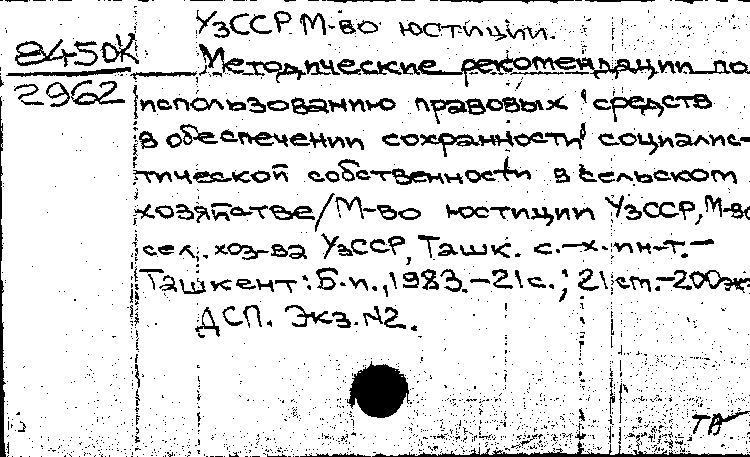 УзССР М-во юстиции.
8450К
Методические рекомендации по
2962
использованию правовых средств
в обеспечении сохранности социалис-
тической собственности в сельском
хозяйстве/М-во юстиции УзССР, М-во
сел. хоз-ва УзССР, Ташк. с.-х. ин-т.-
Ташкент: Б.и., 1983.-21с.; 21 ст.-200экз
ДСП. Экз.N2.